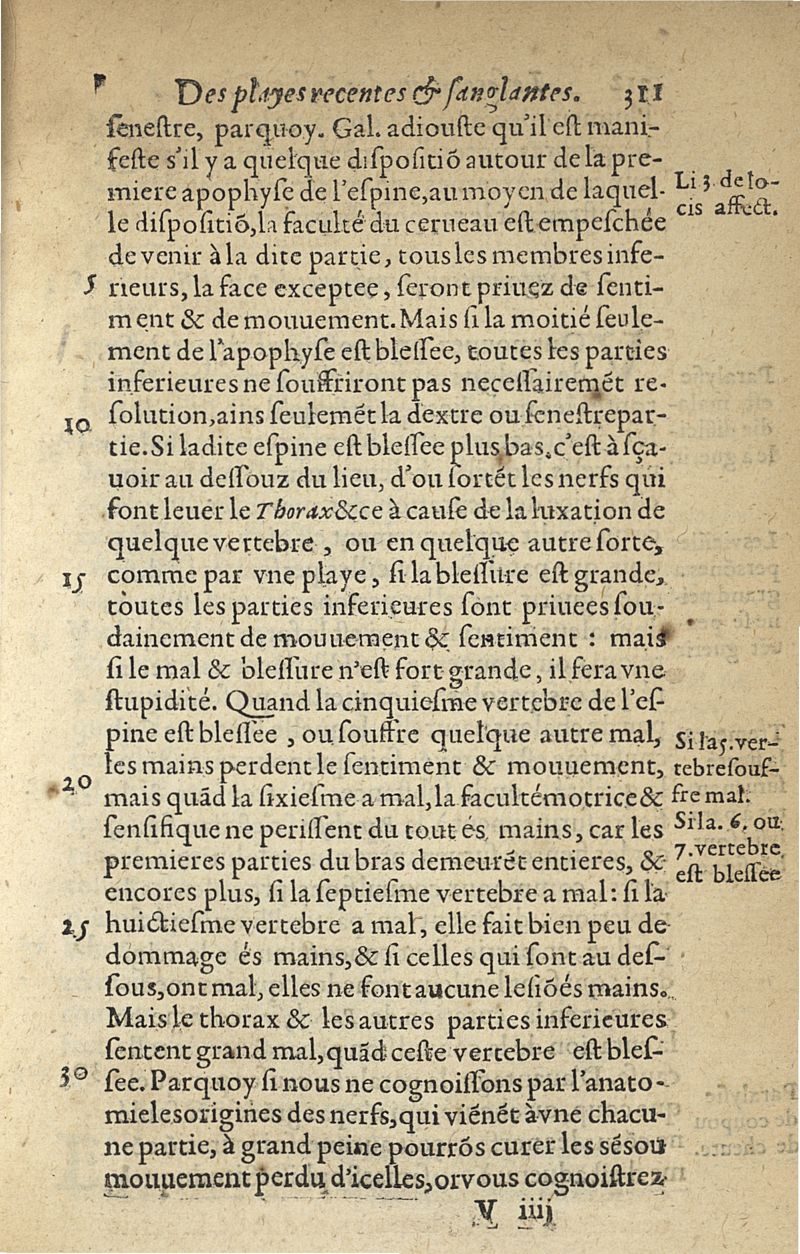 Des playes recentes & sanglantes. 311
senestre, parquoy. Gal. adiouste qu'il est mani-
feste s'il y a quelque dispositiõ autour de la pre-
miere apophyse de l'espine, au moyen de laquel-
Li 3. de lo-
cis affect.
le dispositiõ, la faculté du cerueau est empeschée
de venir à la dite partie, tous les membres infe-
5 rieurs, la face exceptee, seront priuez de senti-
ment & de mouuement. Mais si la moitié seule-
ment de l'apophyse est blessee, toutes les parties
inferieures ne souffriront pas necessairemẽt re-
10 solution, ains seulemẽt la dextre ou senestre par-
tie. Si ladite espine est blessee plus bas, c'est à sça-
uoir au dessouz du lieu, d'ou sortẽt les nerfs qui
font leuer le Thorax & ce à cause de la luxation de
quelque vertebre, ou en quelque autre sorte,
15 comme par vne playe, si la blessure est grande,
toutes les parties inferieures sont priuees sou-
dainement de mouuement & sentiment : mais
si le mal & blessure n'est fort grande, il fera vne
stupidité. Quand la cinquiesme vertebre de l'es-
pine est blessee, ou souffre quelque autre mal,
Si la 5. ver-
tebre souf-
fre mal.
les mains perdent le sentiment & mouuement,
20 mais quãd la sixiesme a mal, la faculté motrice &
sensifique ne perissent du tout és mains, car les
Si la. 6. ou
7. vertebre
est blessée
premieres parties du bras demeurẽt entieres, &
encores plus, si la septiesme vertebre a mal : si la
25 huictiesme vertebre a mal, elle fait bien peu de
dommage és mains, & si celles qui sont au des-
sous, ont mal, elles ne font aucune lesiõ és mains.
Mais le thorax & les autres parties inferieures
sentent grand mal, quãd ceste vertebre est bles-
30 see. Parquoy si nous ne cognoissons par l'anato-
mie les origines des nerfs, qui viẽnẽt à vne chacu-
ne partie, à grand peine pourrõs curer les sẽs ou
mouuement perdu d'icelles, or vous cognoistrez
V iiij